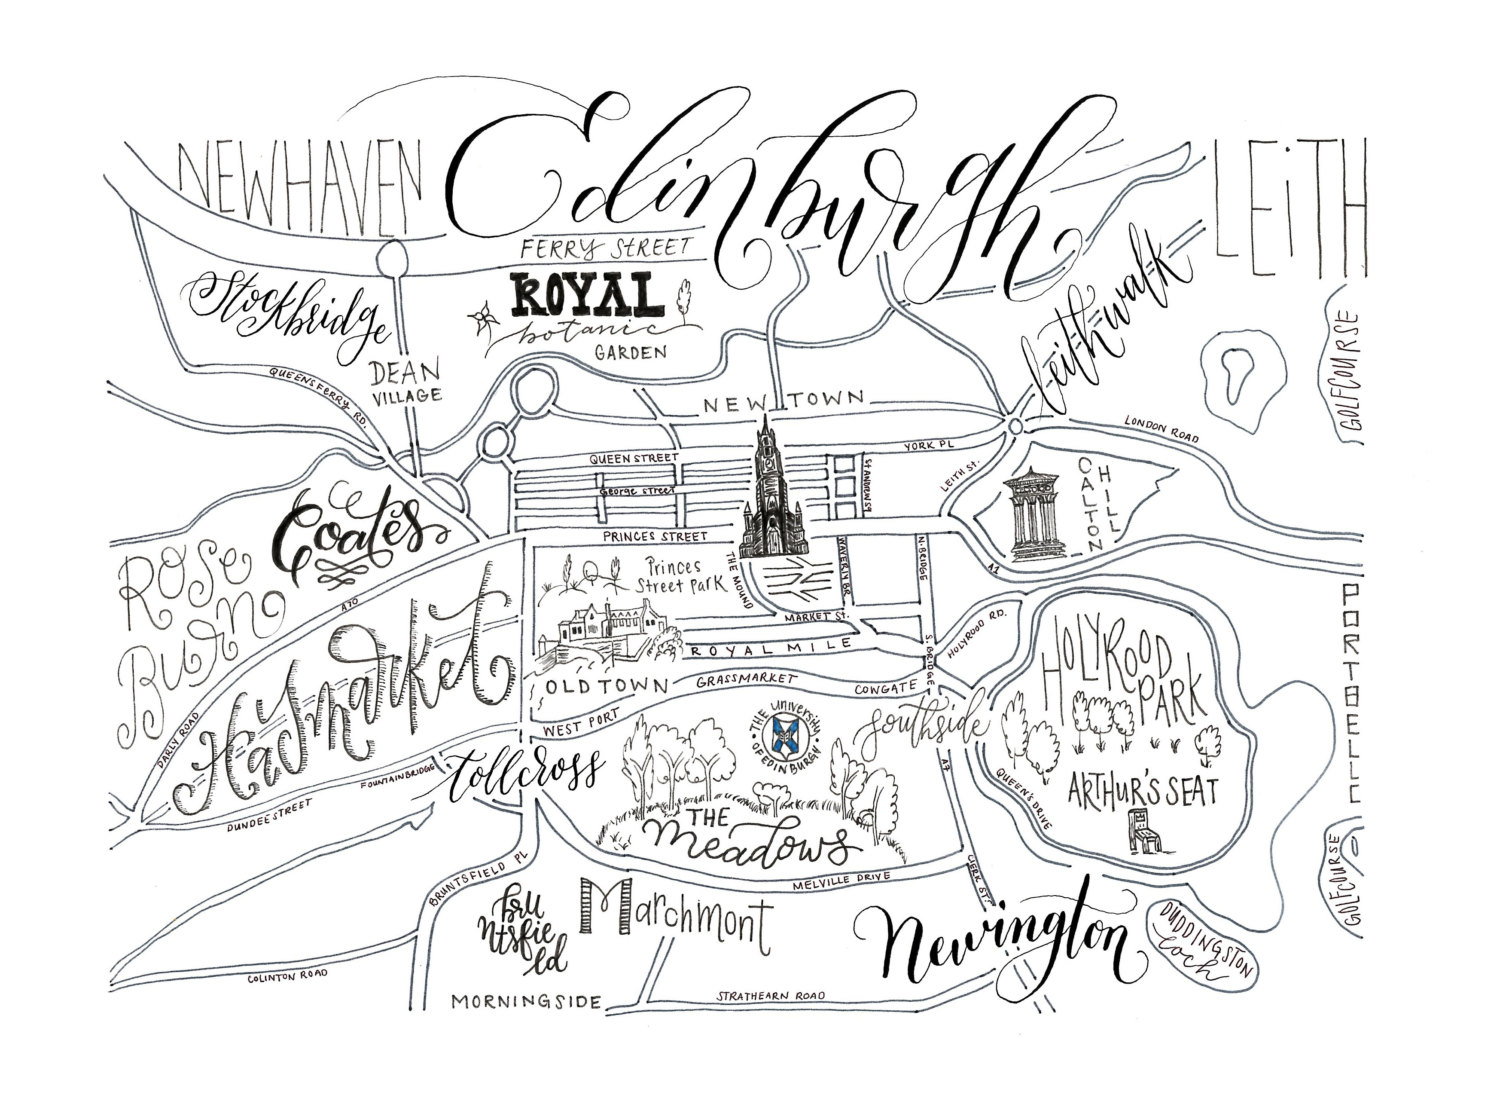 Edinburgh
NEWHAVEN
LEiTH
FERRY STREET
ROYAL
botanic
GARDEN
Stockbridge
DEAN
VILLAGE
QUEENSFERRY RD.
Leith walk
GOLFCOURSE
NEW TOWN
LONDON ROAD
YORK PL
QUEEN STREET
George street
ST ANDREW SQ
LEITH St.
CALTON
HILL
PRINCES STREET
Coates
ROSE
BURN
A70
Haymarket
DARLY ROAD
Princes
Street Park
THE MOUND
WAVERLY BR.
N. BRIDGE
A1
MARKET St.
ROYAL MILE
S. BRIDGE
HOLYROOD RD.
HOLYROOD
PARK
PORTOBELLO
OLD TOWN
GRASSMARKET
COWGATE
WEST PORT
southside
THE UNIVERSITY
OF EDINBURGH
FOUNTAINBRIDGE
tollcross
DUNDEE STREET
A7
QUEEN'S DRIVE
ARTHUR'S SEAT
THE
meadows
BRUNTSFIELD PL
MELVILLE DRIVE
CLERK ST.
GOLFCOURSE
bru
ntsfie
ld
Marchmont
Newington
DUDDINGSTON
Loch
COLINTON ROAD
MORNINGSIDE
STRATHEARN ROAD